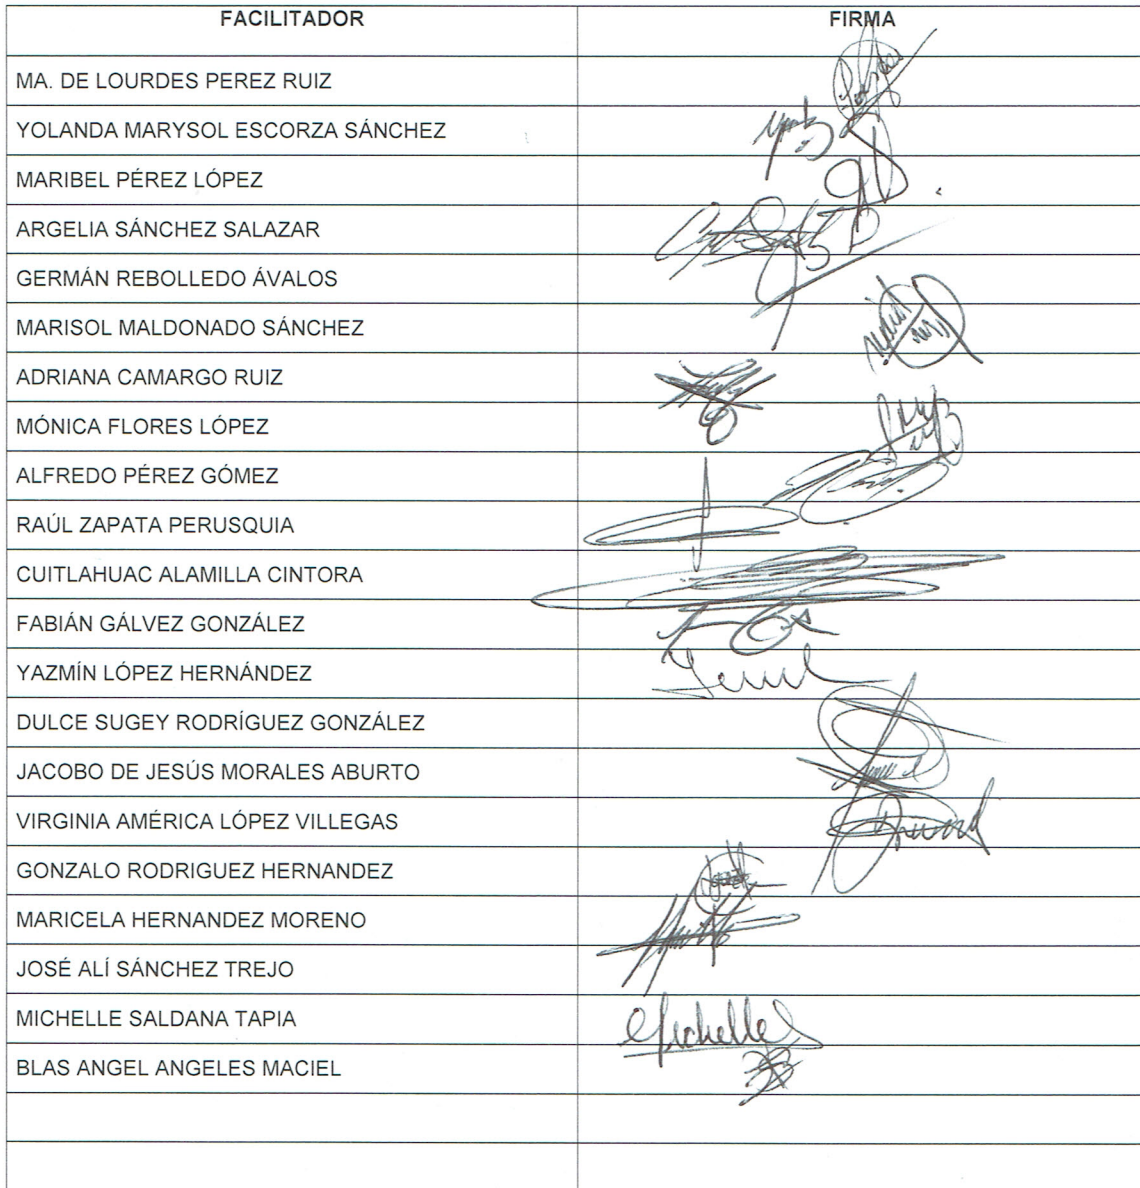 FACILITADOR FIRMA
MA. DE LOURDES PEREZ RUIZ
YOLANDA MARYSOL ESCORZA SÁNCHEZ
MARIBEL PÉREZ LÓPEZ
ARGELIA SÁNCHEZ SALAZAR
GERMÁN REBOLLEDO ÁVALOS
MARISOL MALDONADO SÁNCHEZ
ADRIANA CAMARGO RUIZ
MÓNICA FLORES LÓPEZ
ALFREDO PÉREZ GÓMEZ
RAÚL ZAPATA PERUSQUIA
CUITLAHUAC ALAMILLA CINTORA
FABIÁN GÁLVEZ GONZÁLEZ
YAZMÍN LÓPEZ HERNÁNDEZ
DULCE SUGEY RODRÍGUEZ GONZÁLEZ
JACOBO DE JESÚS MORALES ABURTO
VIRGINIA AMÉRICA LÓPEZ VILLEGAS
GONZALO RODRIGUEZ HERNANDEZ
MARICELA HERNANDEZ MORENO
JOSÉ ALÍ SÁNCHEZ TREJO
MICHELLE SALDANA TAPIA Michelle
BLAS ANGEL ANGELES MACIEL